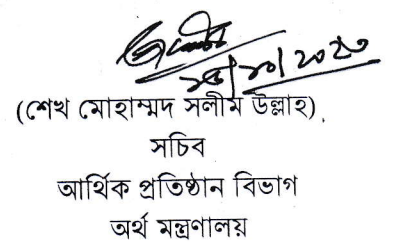 (শেখ মোহাম্মদ সলীম উল্লাহ)
সচিব
আর্থিক প্রতিষ্ঠান বিভাগ
অর্থ মন্ত্রণালয়